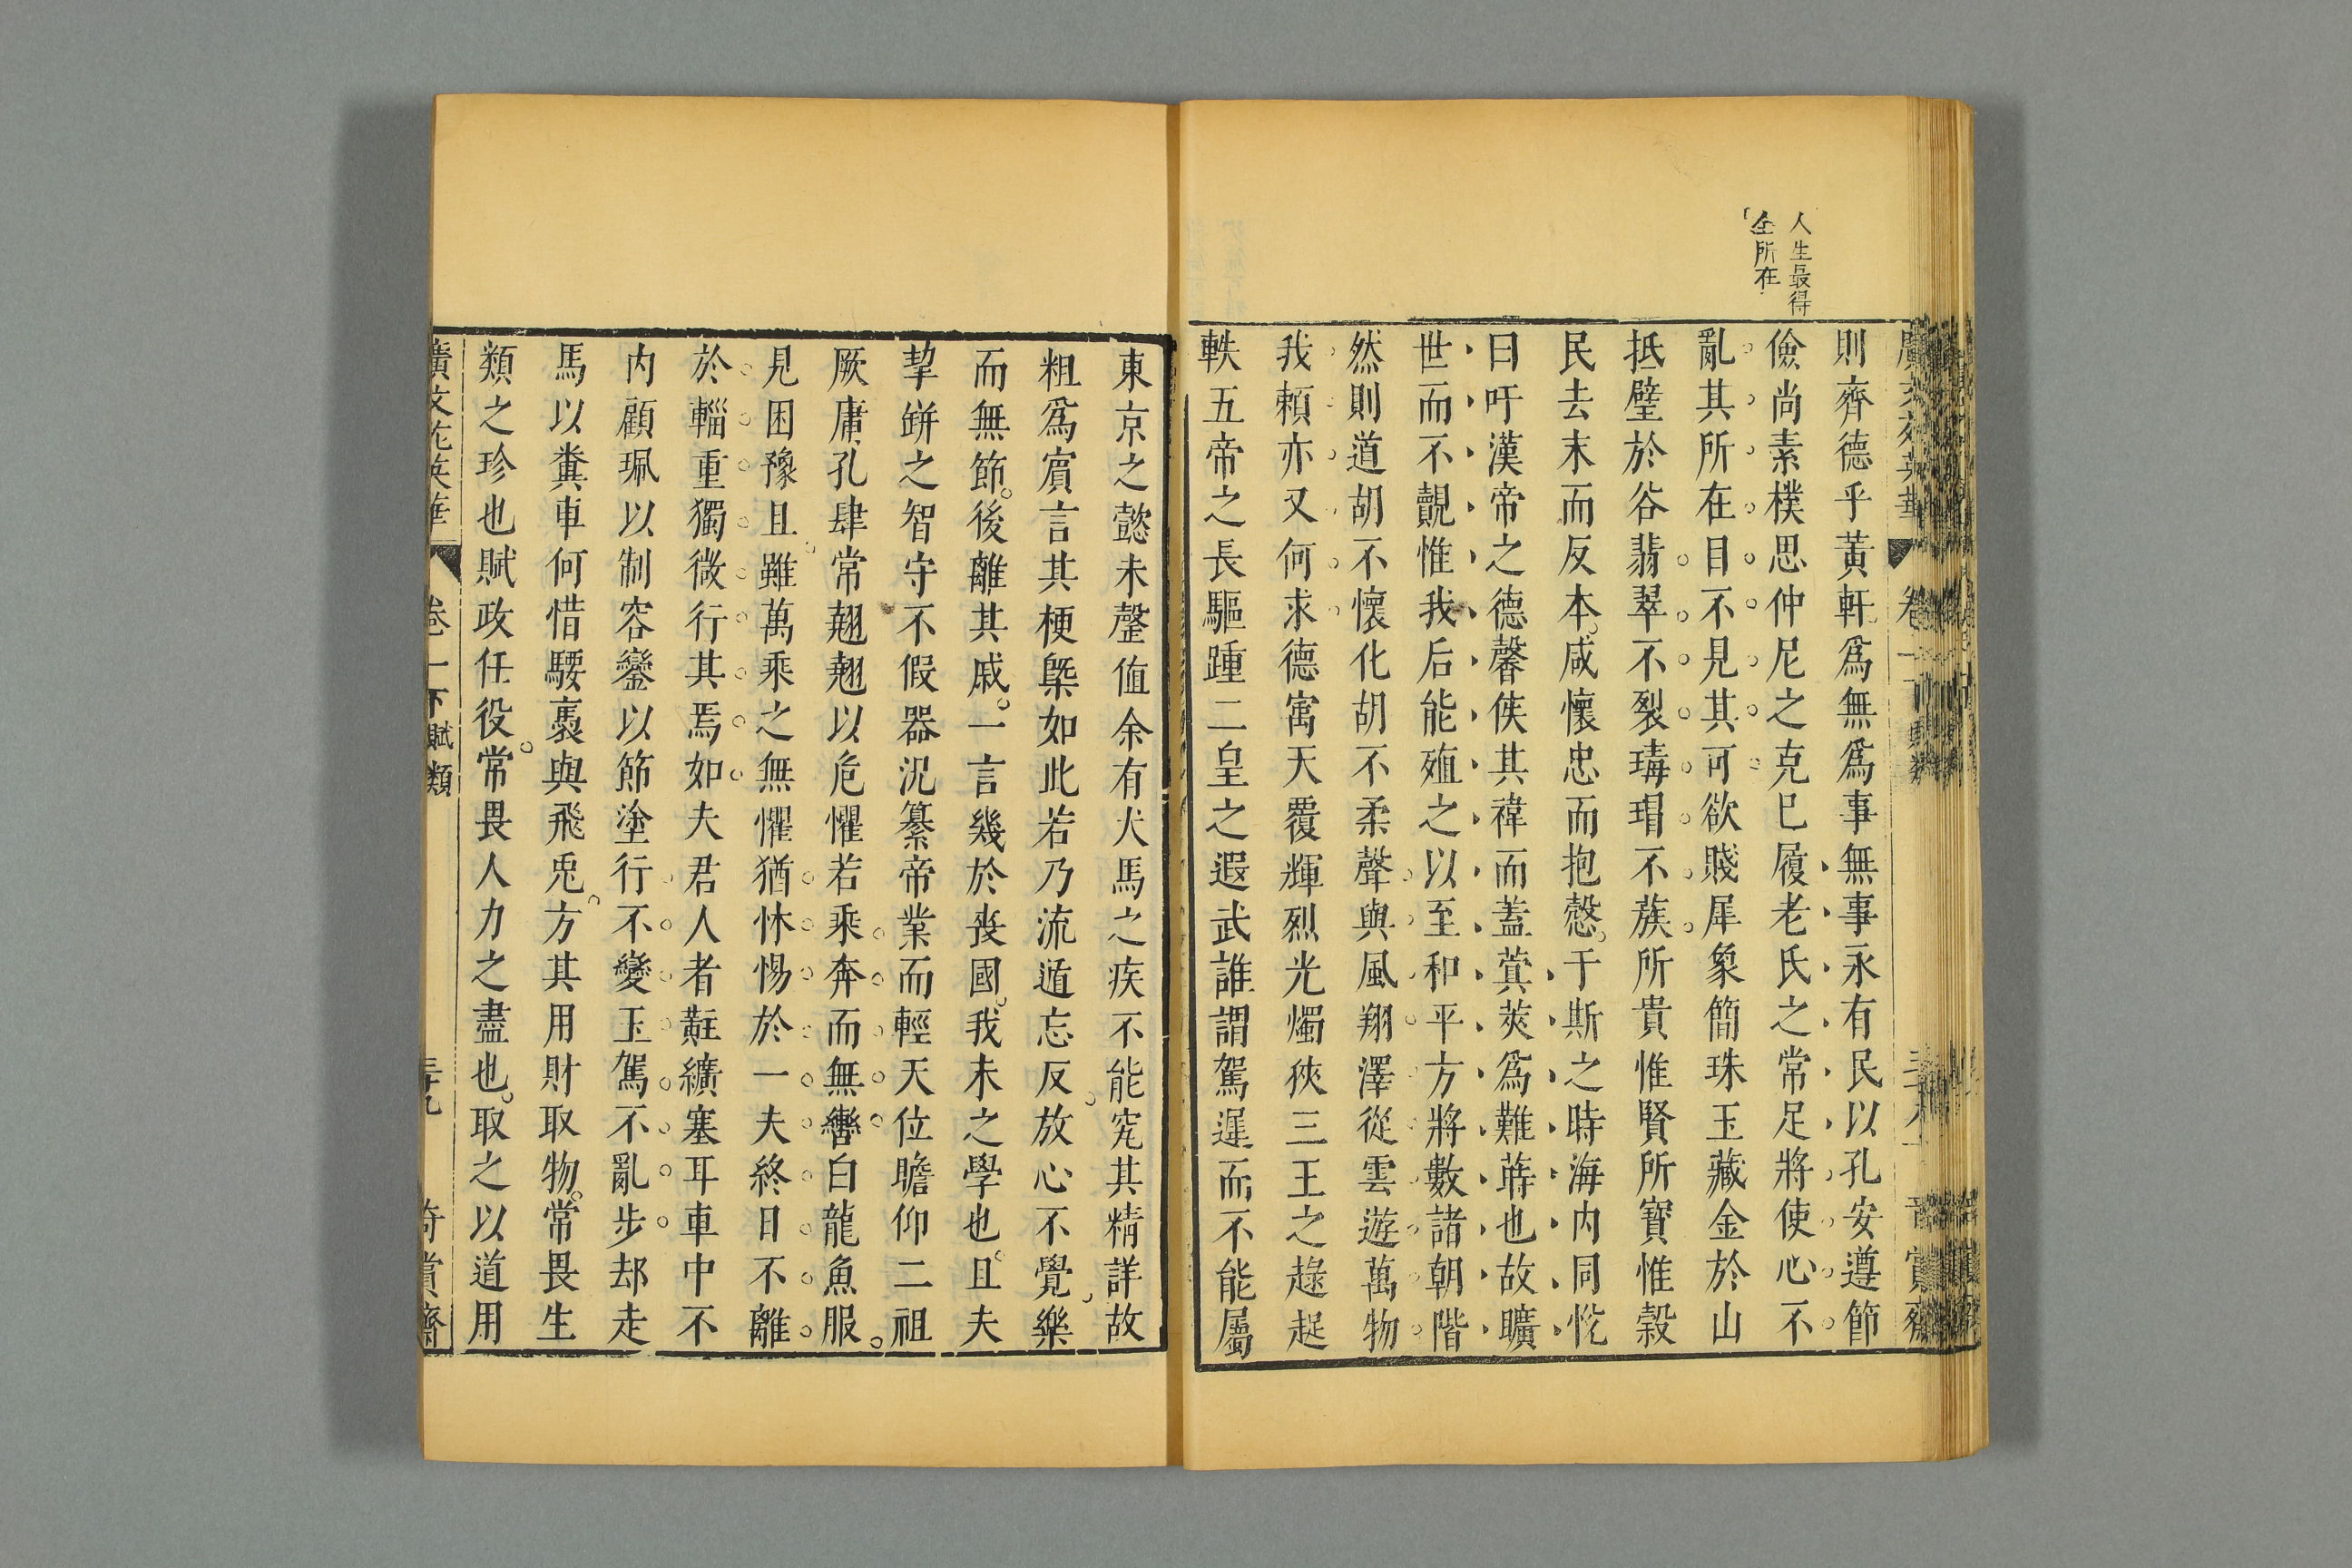 人生最得
全所在
則齊德乎黃軒爲無爲事無事永有民以孔安遵節
儉尚素樸思仲尼之克巳履老氏之常足將使心不
亂其所在目不見其可欲賤犀象簡珠玉藏金於山
抵璧於谷翡翠不裂瑇瑁不蔟所貴惟賢所寶惟穀
民去末而反本咸懷忠而抱慤于斯之時海内同悅
曰吁漢帝之德馨侯其禕而蓋蓂莢爲難蒔也故曠
世而不覿惟我后能殖之以至和平方將數諸朝階
然則道胡不懷化胡不柔聲與風翔澤從雲遊萬物
我賴亦又何求德寓天覆輝烈光燭狹三王之趢起
軼五帝之長驅踵二皇之遐武誰謂駕遲而不能屬
東京之懿未罄值余有犬馬之疾不能究其精詳故
粗爲賔言其梗槩如此若乃流遁忘反放心不覺樂
而無節後離其戚一言幾於喪國我未之學也且夫
挈缾之智守不假器况纂帝業而輕天位瞻仰二祖
厥庸孔肆常翹翹以危懼若乘奔而無轡白龍魚服
見困豫且雖萬乘之無懼猶怵惕於一夫終日不離
於輜重獨微行其焉如夫君人者黈纊塞耳車中不
内顧珮以制容鑾以節塗行不變玉駕不亂步却走
馬以糞車何惜騕褭與飛兎方其用財取物常畏生
類之珍也賦政任役常畏人力之盡也取之以道用
廣文苑英華 卷一下 賦類 三十九 奇賞齋